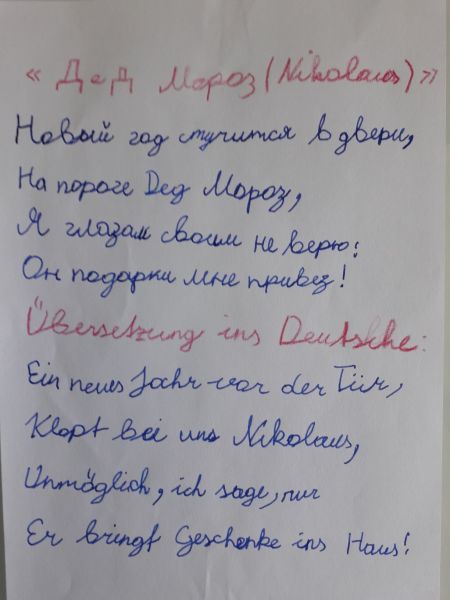 « Дед Мороз (Nikolaus) »
Новый год стучится в двери,
На пороге Дед Мороз,
Я глазам своим не верю:
Он подарки мне привез!
Übersetzung ins Deutsche:
Ein neues Jahr vor der Tür,
Klopt bei uns Nikolaus,
Unmöglich, ich sage, nur
Er bringt Geschenke ins Haus!